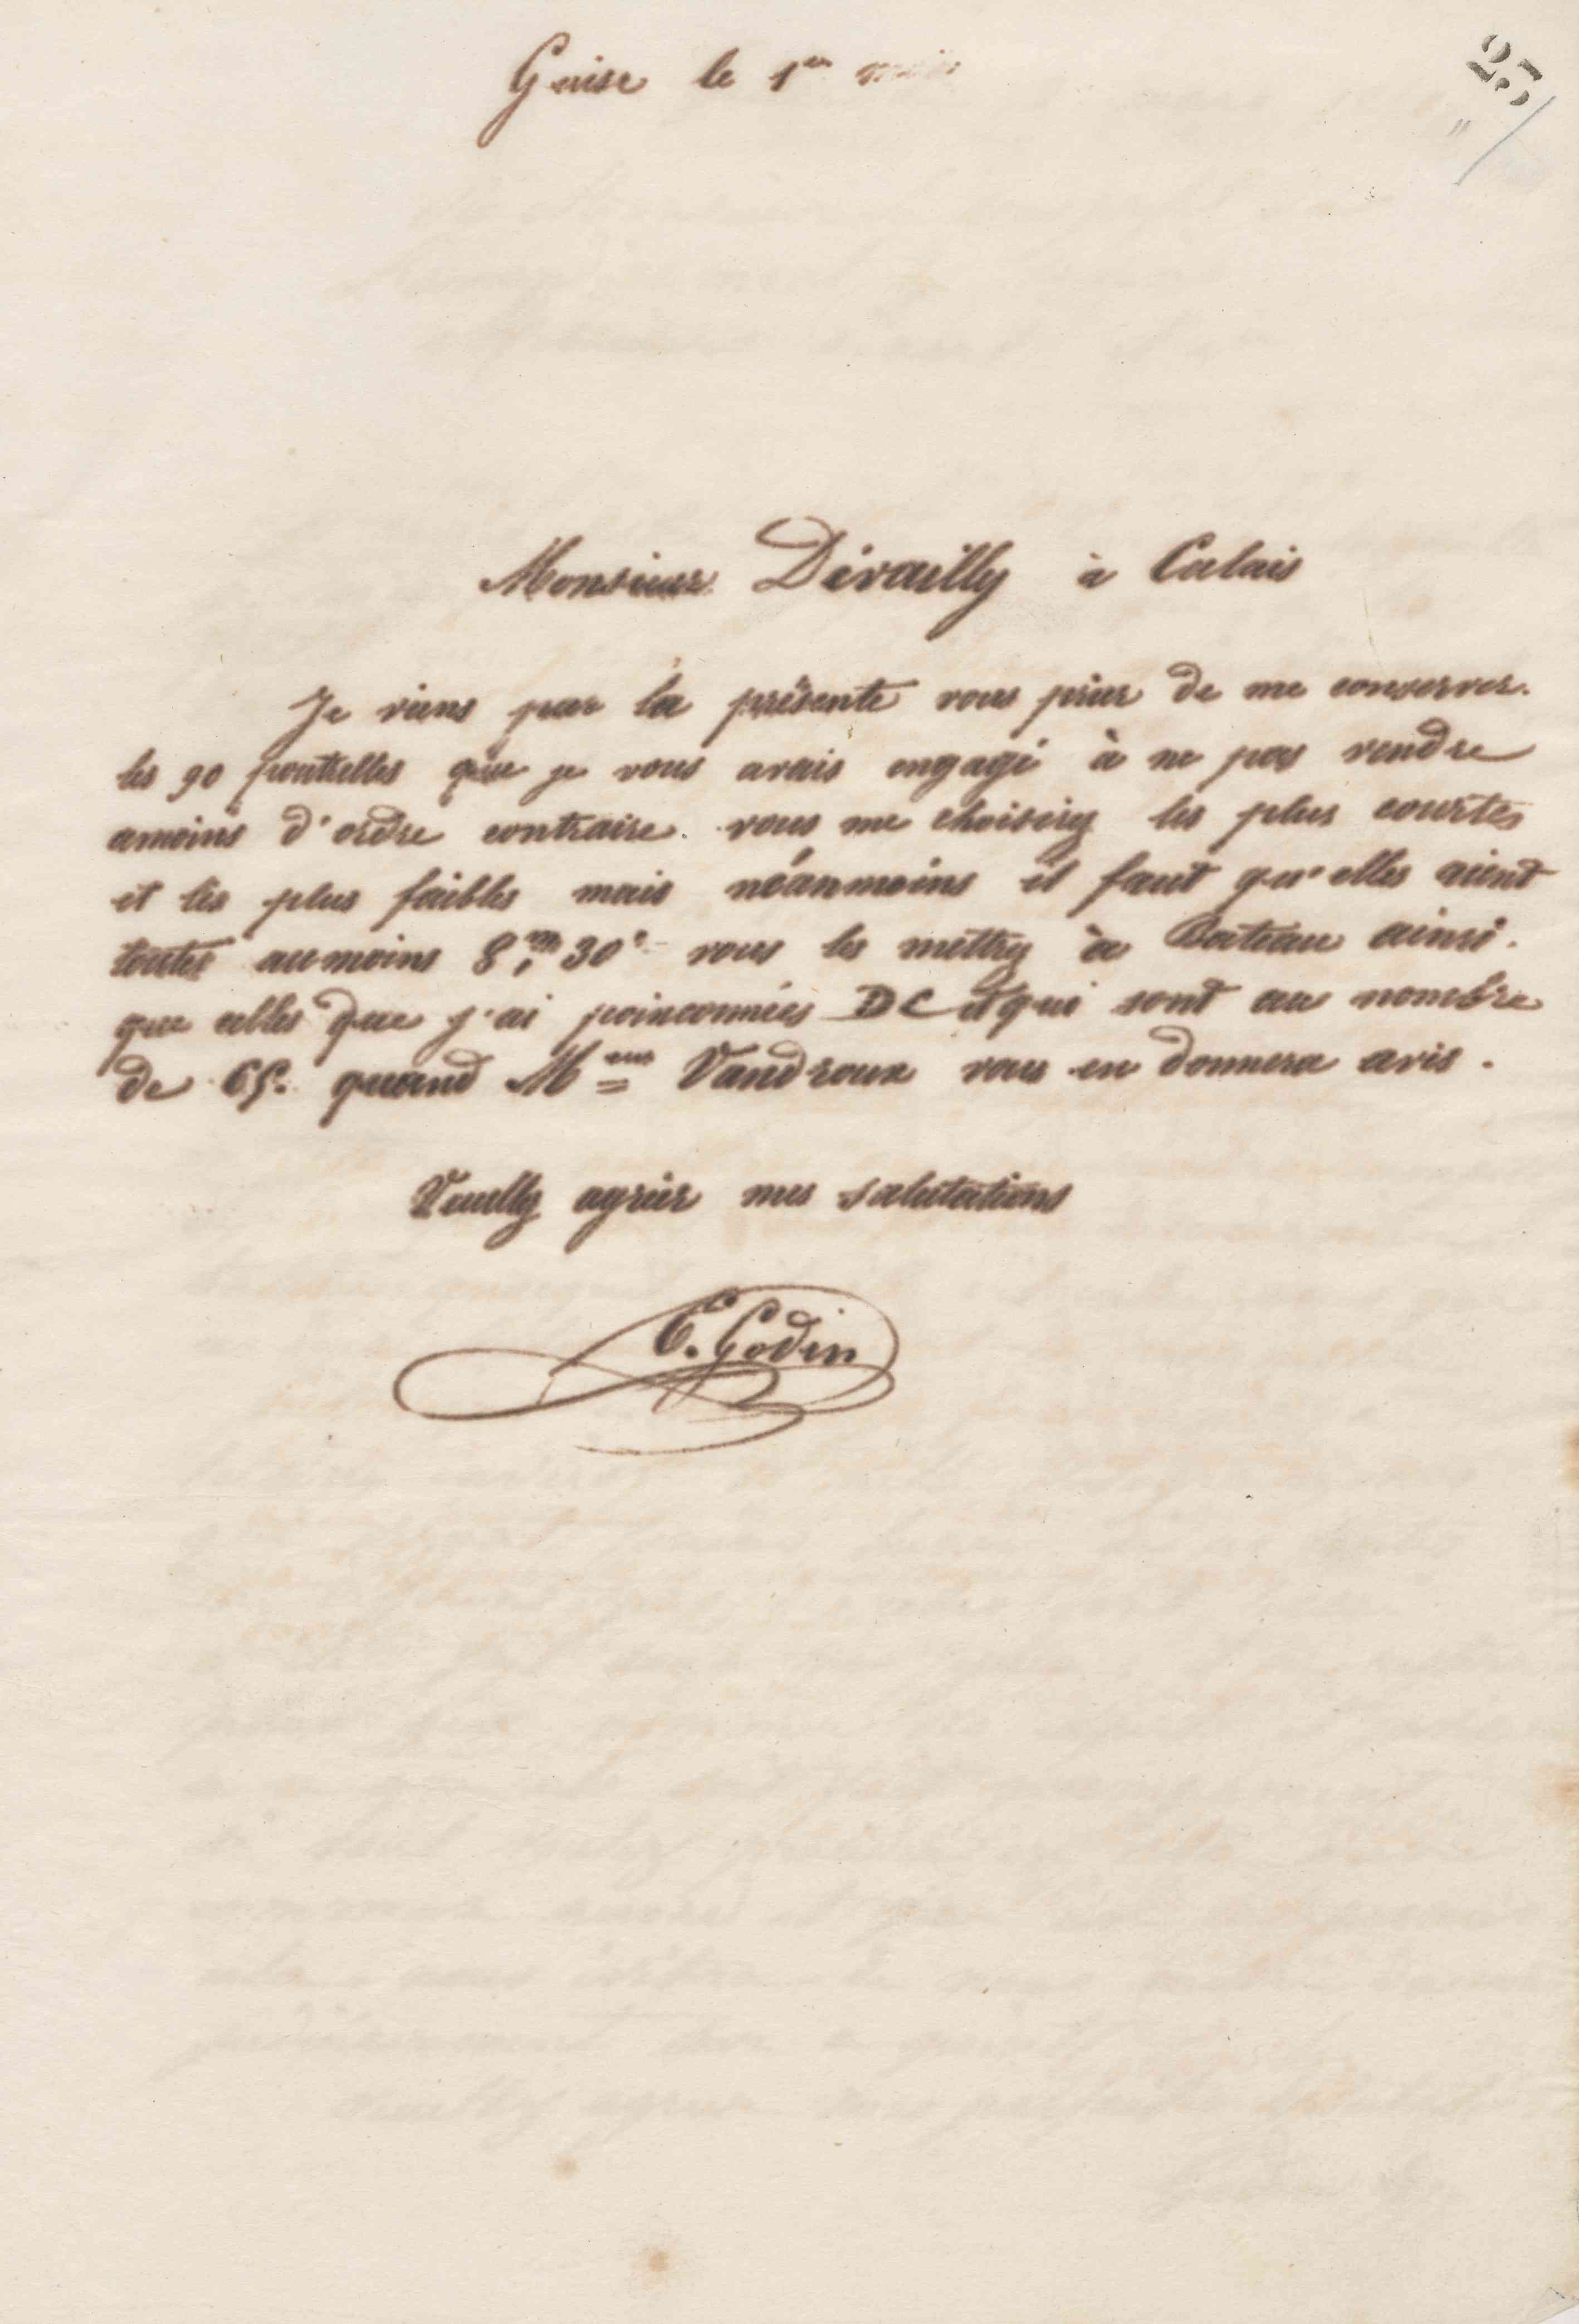 25
Guise le 1er
Monsieur Dévailly à Calais
Je viens par la présente vous prier de me conserver.
les 90 poutrelles que je vous avais engagé à ne pas vendre
amoins d'ordre contraire. vous me choisirez les plus courtes
et les plus faibles mais néanmoins il faut qu'elles aient
toutes aumoins 8m,30c vous les mettrez à Bateau ainsi.
que celles que j'ai poinconnées DC et qui sont au nombre
de 65. quand Meur Vandroux vous en donnera avis.
Veuillez agréer mes salutations
Godin